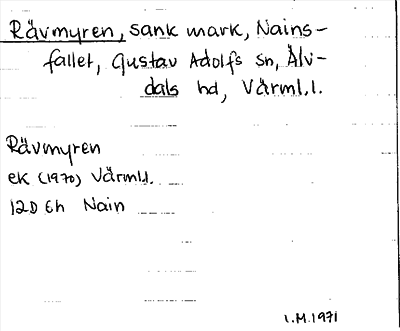 Rävmyren, sank mark, Nains-
fallet, Gustav Adolfs sn, Älv-
dals hd, Värml.l.
Rävmyren
ek (1970) Värml.l.
12D 6h Nain
L.M.1971